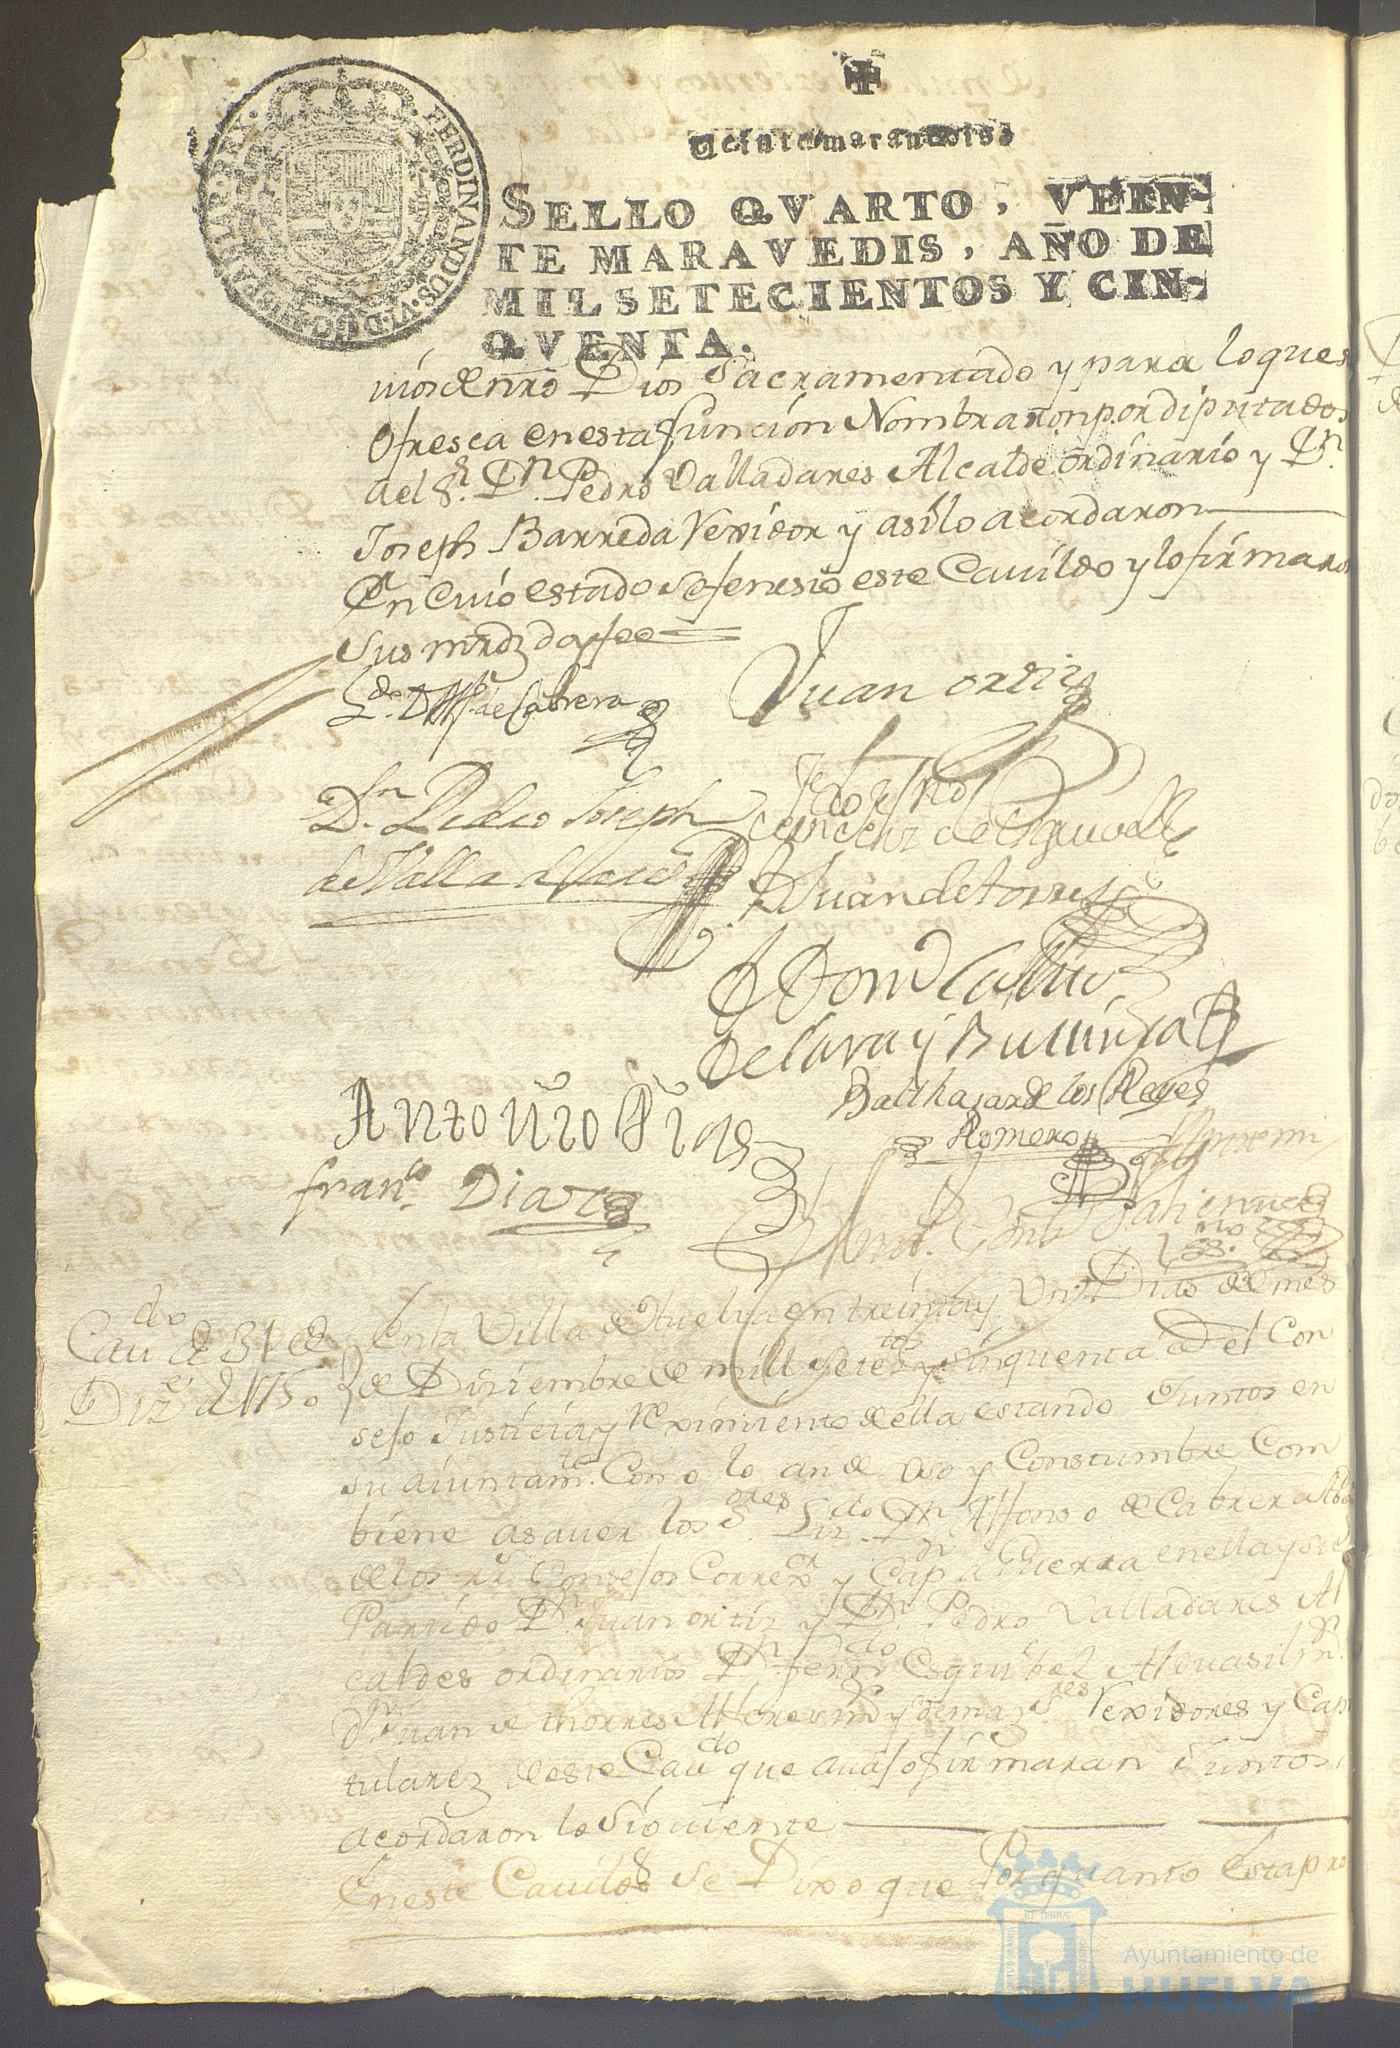 FERDINANDUS.VI.D.G. HISPANIAR.REX.
Veinte maravedis.
SELLO QVARTO, VEIN-
TE MARAVEDIS, AÑO DE
MIL SETECIENTOS Y CIN-
QVENTA.
uiòs de nro Dios Sacramentado y para lo que se
Ofresca en esta función Nombraron por diputados
a el Sr. Dn. Pedro Valladares Alcalde ordinario y Dn.
Joseph Barreda Rexidor y asi lo acordaron
En Cuio estado se fenesio este Cauildo y lo firmaron
Sus mrds doy fee
Ldo. D. Alfo. de Cabrera
Juan ortiz
Dn. Pedro Joseph
de Valladares
de Esquibel
D Juan de torres
D Domo
de Lara y
Balthasar de los Reyes
Romero
Antonio Dias
franco. Diaz
Ante mi
Cavdo de 31 de
Dize. de 1750
En la Villa de Huelva en treinta y Un Dias del mes
de Diziembre de mill Setetos y sinquenta as el Con
sejo Justicia y Reximiento de ella estando Juntos en
su aiuntamto. Como lo an de Uso y Constumbre Com
biene asauer los Sores Lizdo Dn Alfonso de Cabrera Abo
de los Rs. Consejos Correxor y Capn a Guerra en ella y su
Partido Dn Juan ortiz y Dn Pedro Valladares Al
caldes ordinarios Dn ferndo Esquibel Alguasil mr.
Dn Juan de thorres Alferez mr y demas Sres Rexidores y Capi
tulares de este Cavdo que auajo firmaran Juntos
acordaron lo Siguiente
En este Cauildo se Dixo que Por quanto Esta pro
Ayuntamiento de
HUELVA